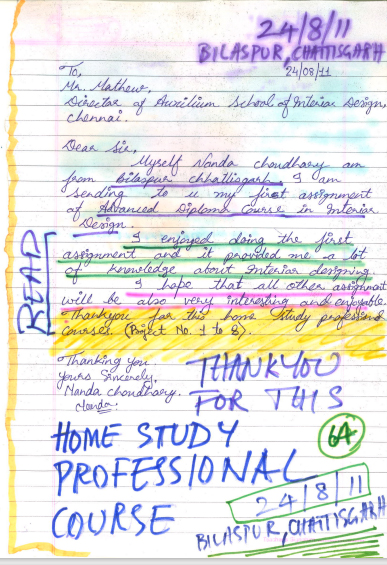 24/8/11
BILASPUR, CHATTISGARH
24/08/11
To,
Mr. Mathew,
Director of Auxilium School of Interior Design,
Chennai.
Dear Sir,
Myself Nanda choudhary am
from bilaspur chhattisgarh. I am
sending to u my first assignment
of Advanced Diploma Course in Interior
Design.
I enjoyed doing the first
assignment and it provided me a lot
of knowledge about Interior designing.
I hope that all other assignment
will be also very interesting and enjoyable.
Thankyou for this home study professional
courses. (Project No. 1 to 8).
READ
Thanking you
Yours Sincerely,
Nanda choudhary.
Nanda.
THANKYOU
FOR THIS
HOME STUDY
PROFESSIONAL
COURSE
64
24/8/11
BILASPUR, CHATTISGARH